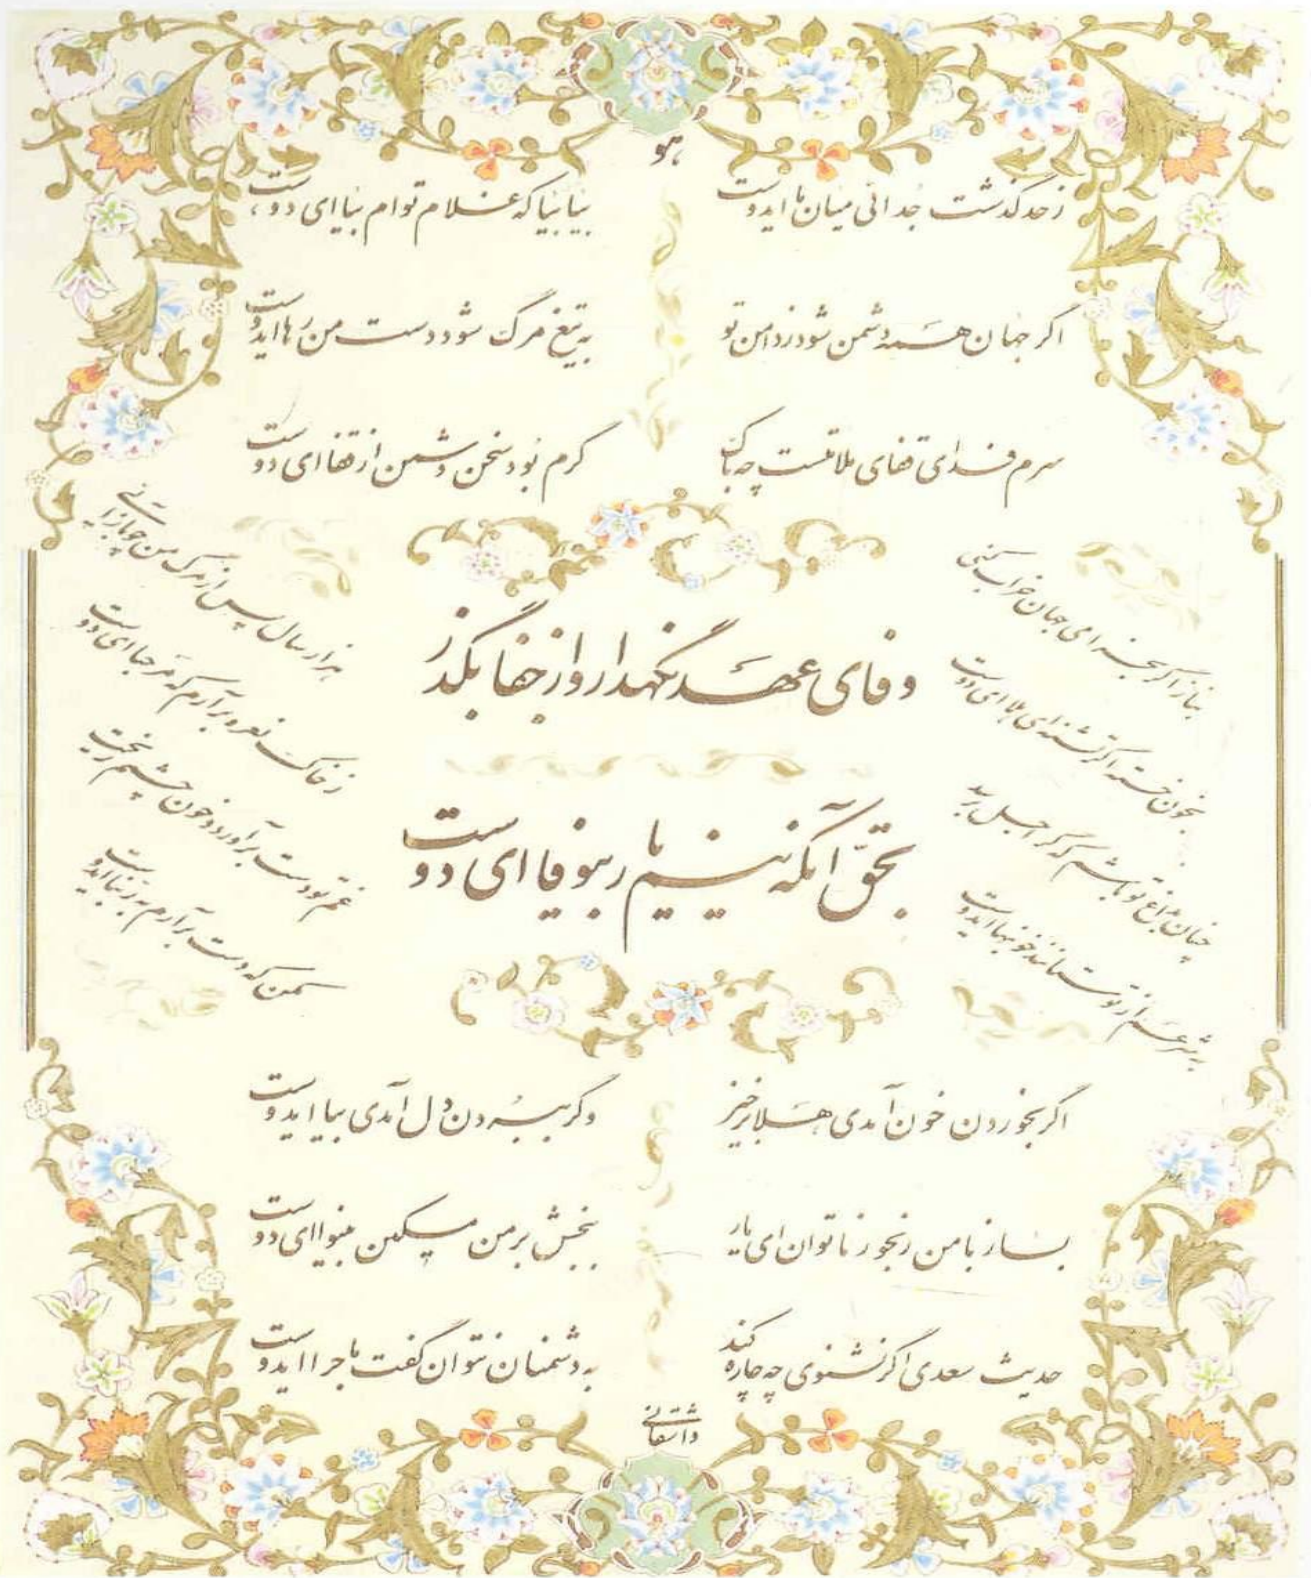 هو
ز حد گذشت جدائی میان ما ایدوست
بیا بیا که غلام توام بیا ای دوست
اگر جهان همه دشمن شود ز دامن تو
به تیغ مرگ شود دست من رها ایدوست
سرم فدای قفای ملامتست چه باک
گرم بود سخن دشمن از قفا ای دوست
بناز اگر بخسته ای جهان خراب کنی
بخون خسته اگر تشنه ای هلا ای دوست
چنان بداغ تو باشم که گر اجل برسد
به شرعم از تو ستانند خونبها ایدوست
وفای عهد نگهدار و از جفا بگذر
بحق آنکه نیم یار بیوفا ای دوست
هزار سال پس از مرگ من چو باز آئی
ز خاک نعره برآرم که مرحبا ای دوست
غم تو دست برآورد و خون چشمم ریخت
مکن که دست برآرم به ربنا ایدوست
اگر بخوردن خون آمدی هلا برخیز
وگر ببردن دل آمدی بیا ایدوست
بساز با من رنجور ناتوان ای یار
ببخش بر من مسکین بینوا ای دوست
حدیث سعدی اگر نشنوی چه چاره کند
به دشمنان نتوان گفت ماجرا ایدوست